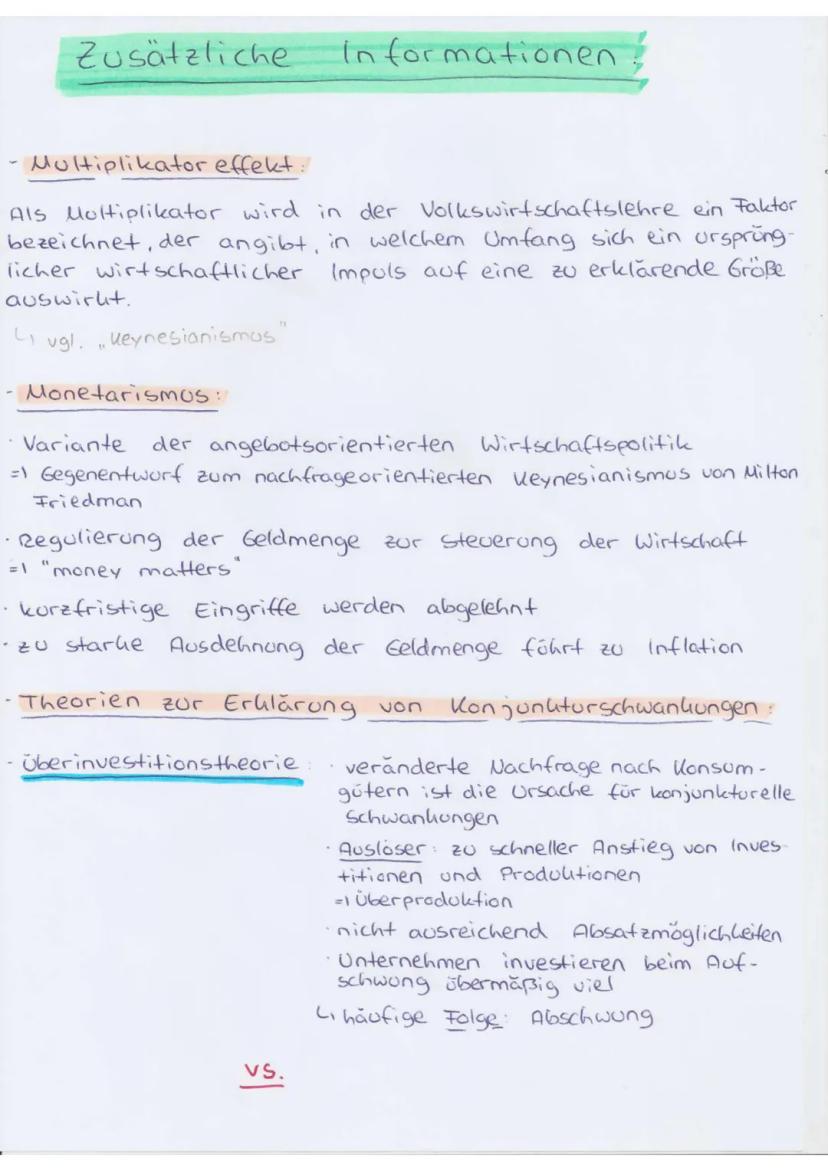 Zusätzliche Informationen:
- Multiplikatoreffekt:
Als Multiplikator wird in der Volkswirtschaftslehre ein Faktor
bezeichnet, der angibt, in welchem Umfang sich ein ursprüng-
licher wirtschaftlicher Impuls auf eine zu erklärende Größe
auswirkt.
↳ vgl. „Keynesianismus"
- Monetarismus:
· Variante der angebotsorientierten Wirtschaftspolitik
=> Gegenentwurf zum nachfrageorientierten Keynesianismus von Milton
Friedman
· Regulierung der Geldmenge zur Steuerung der Wirtschaft
=> "money matters"
· kurzfristige Eingriffe werden abgelehnt
· zu starke Ausdehnung der Geldmenge führt zu Inflation
- Theorien zur Erklärung von Konjunkturschwankungen:
- Überinvestitionstheorie: · veränderte Nachfrage nach Konsum-
gütern ist die Ursache für konjunkturelle
Schwankungen
· Auslöser: zu schneller Anstieg von Inves-
titionen und Produktionen
=> Überproduktion
· nicht ausreichend Absatzmöglichkeiten
· Unternehmen investieren beim Auf-
schwung übermäßig viel
↳ häufige Folge: Abschwung
vs.